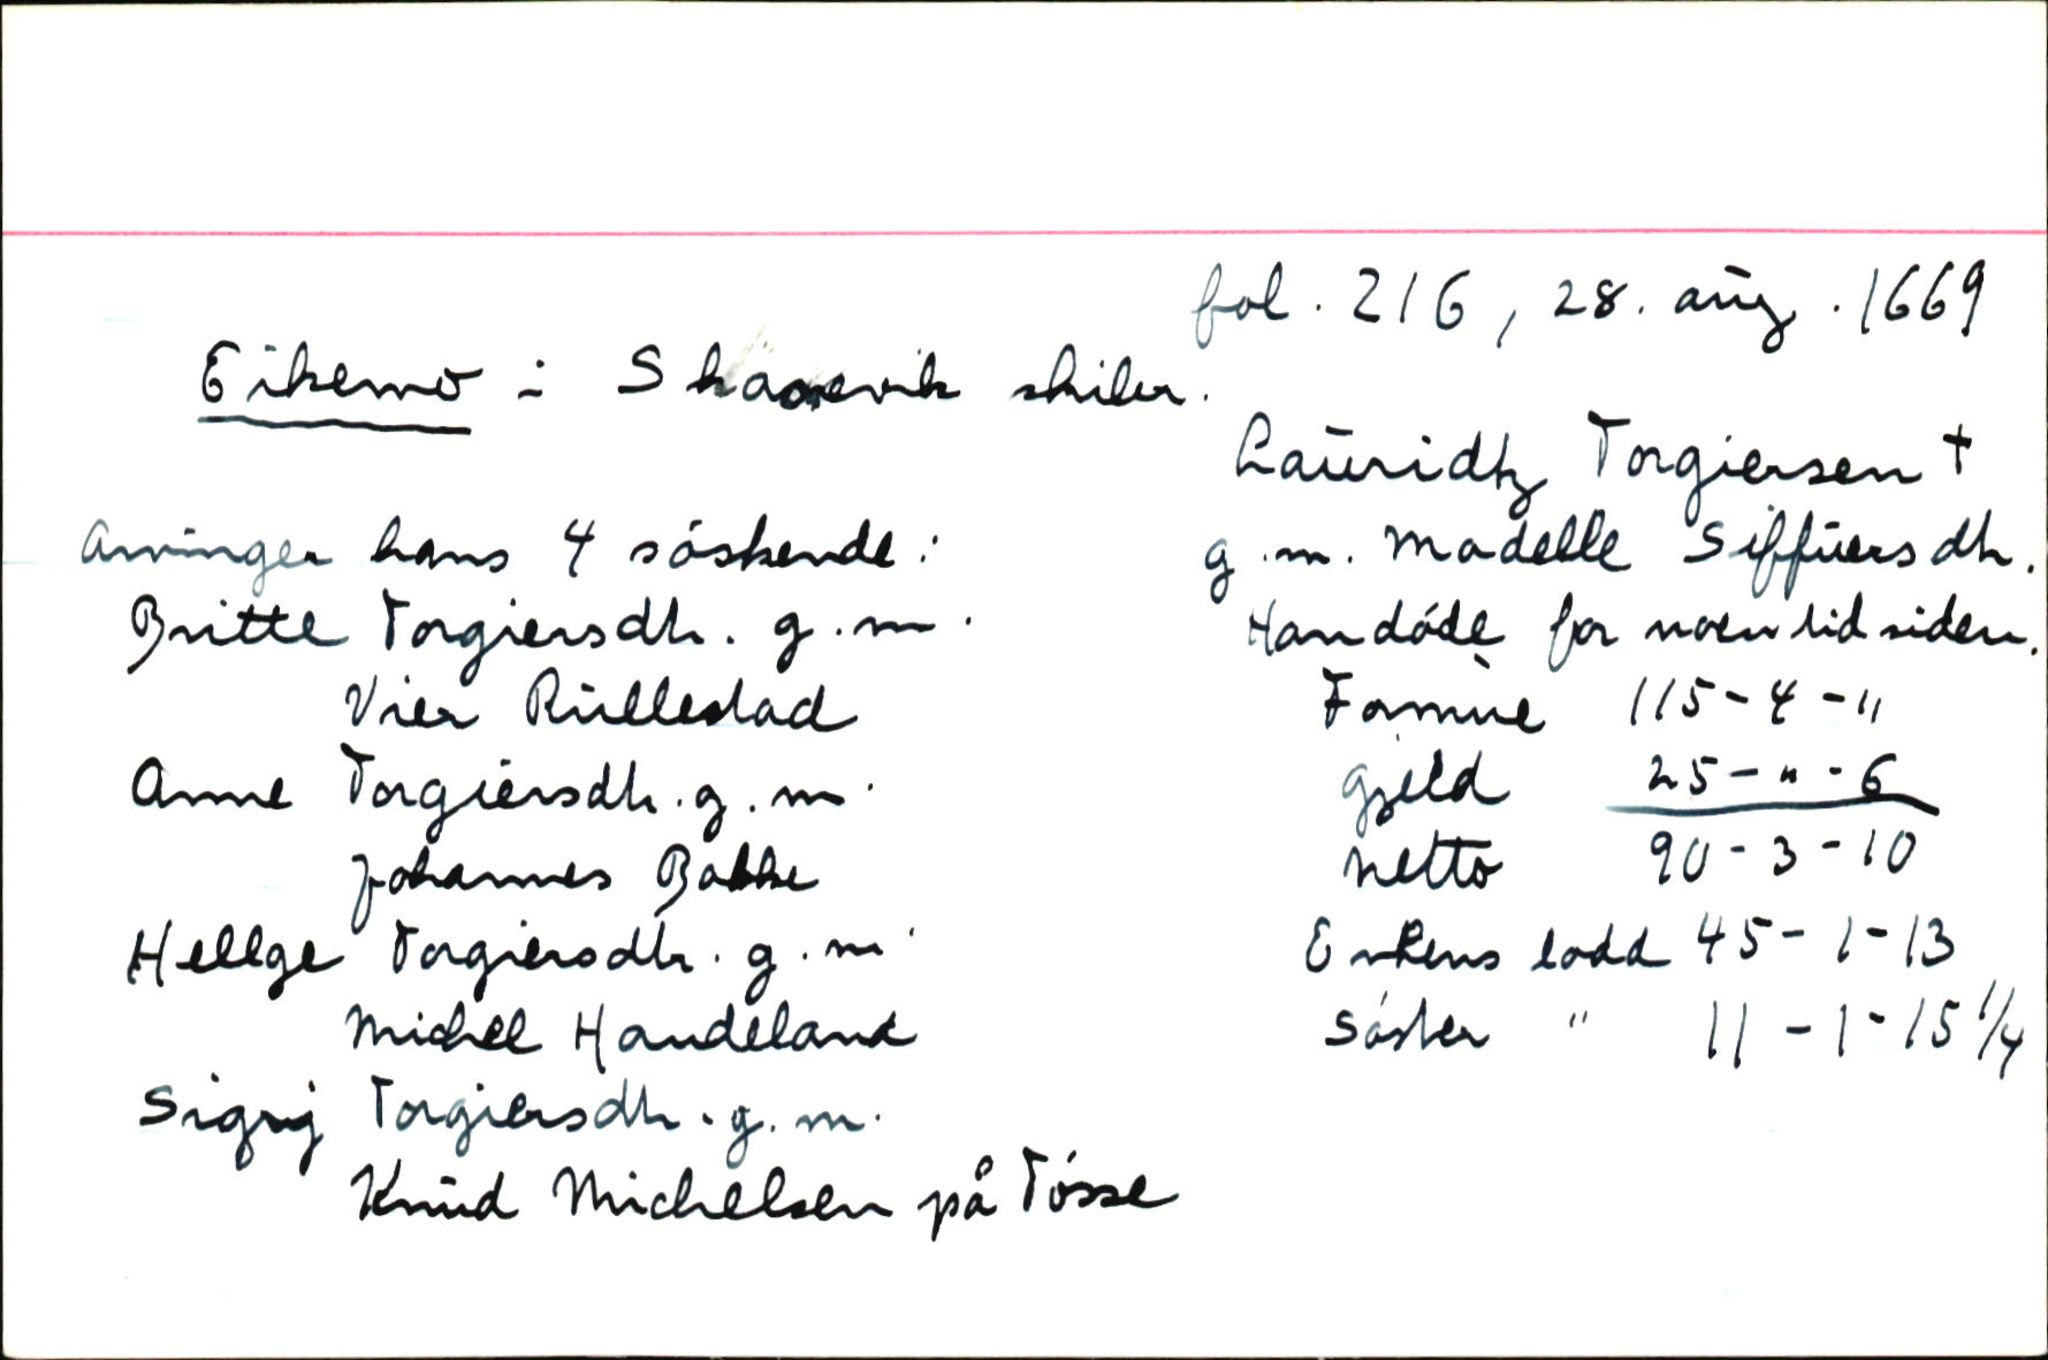 fol. 216, 28. aug. 1669
Eikemo i Skaanevik skiler.
Lauridtz Torgiersen †
g.m. Madelle Siffuersdh.
Han døde for noen tid siden.
Formue 115 - 4 - "
Gjeld 25 - " - 6
Netto 90 - 3 - 10
Enkens lodd 45 - 1 - 13
Søster " 11 - 1 - 15 1/4
Arvinger hans 4 søskende:
Britte Torgiersdh. g.m.
Vier Rullestad
Anne Torgiersdh. g.m.
Johannes Bakke
Hellge Torgiersdh. g.m.
Michel Handeland
Sigrij Torgiersdh. g.m.
Knud Michelsen på Tøsse